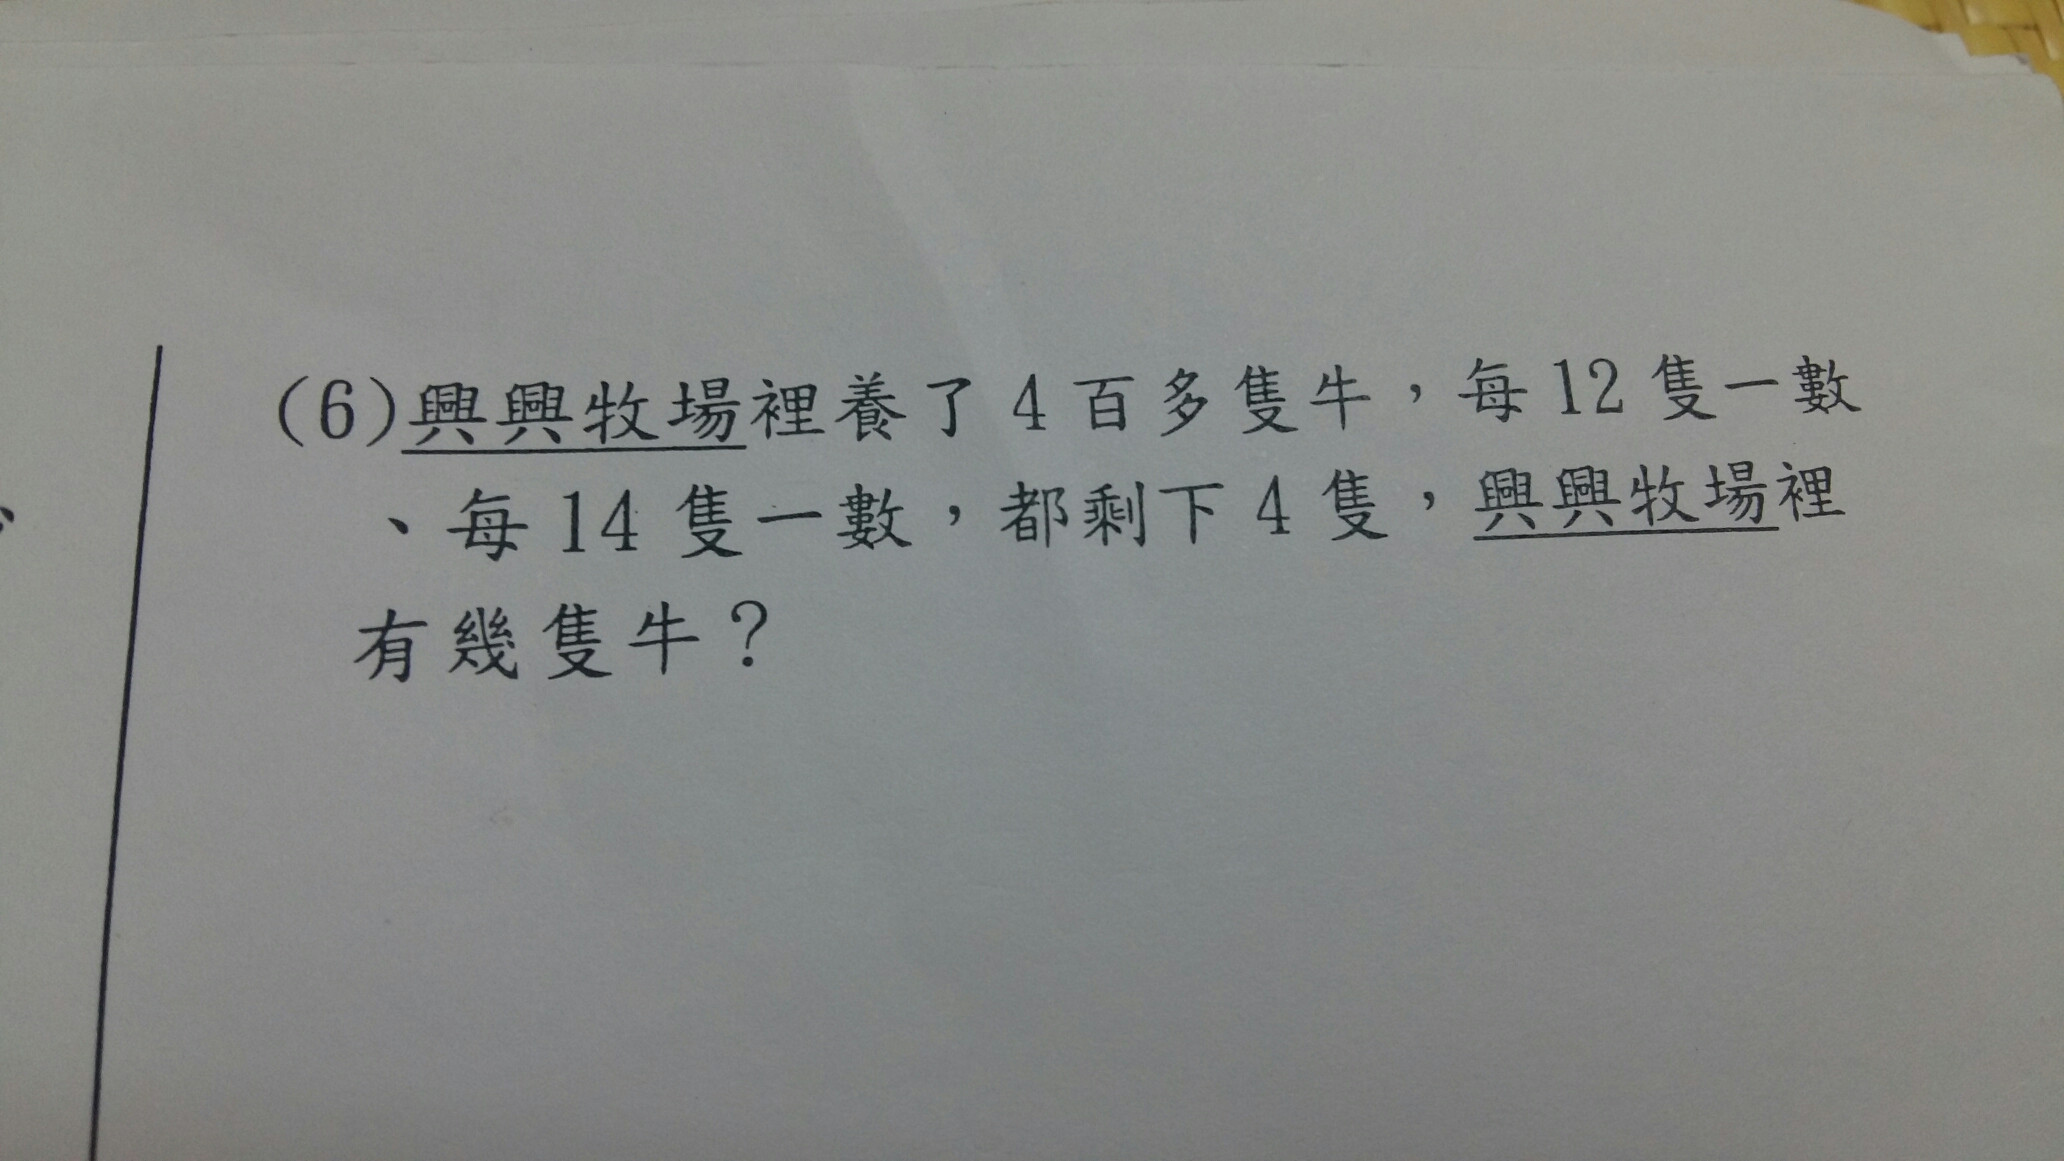 (6)興興牧場裡養了4百多隻牛，每12隻一數
、每14隻一數，都剩下4隻，興興牧場裡
有幾隻牛？